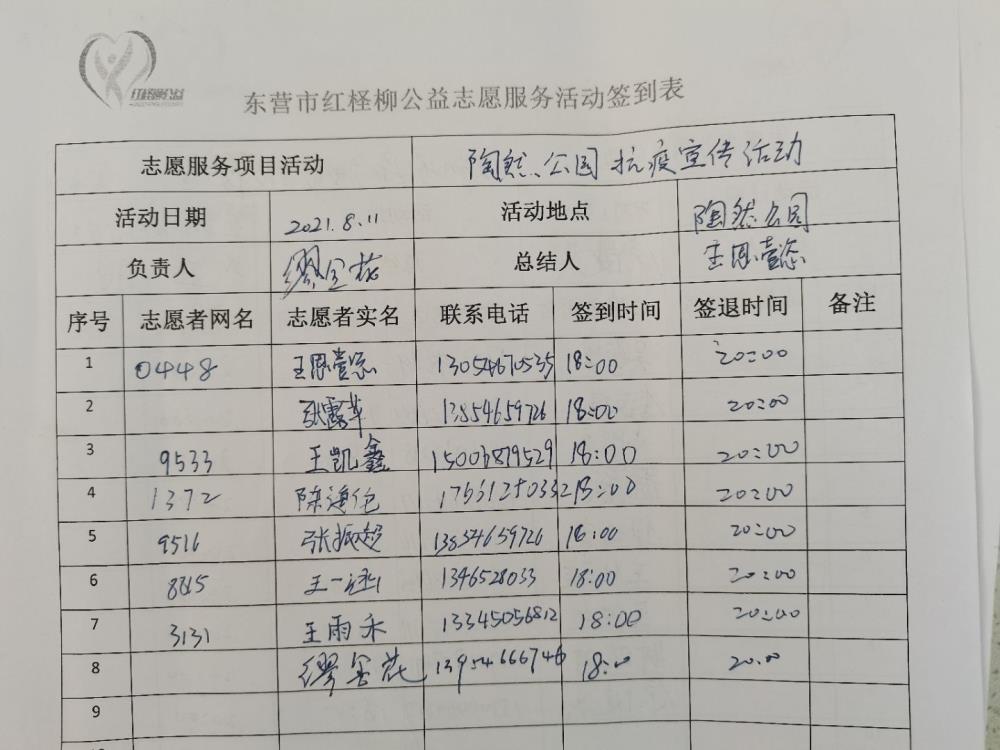 红柽柳公益
东营市红柽柳公益志愿服务活动签到表
志愿服务项目活动 陶然公园抗疫宣传活动
活动日期 2021.8.11 活动地点 陶然公园
负责人 缪金花 总结人 王恩懿恣
序号 志愿者网名 志愿者实名 联系电话 签到时间 签退时间 备注
1 0448 13054670535 18:00 20:00
2 张露苹 13854659726 18:00 20:00
3 9533 王凯鑫 15006879529 18:00 20:00
4 1372 18:00 20:00
5 9516 张振超 13854659726 18:00 20:00
6 8815 王一涵 1346528033 18:00 20:00
7 3131 王雨禾 13345056812 18:00 20:00
8 缪金花 13954666746 18:00 20:00
9